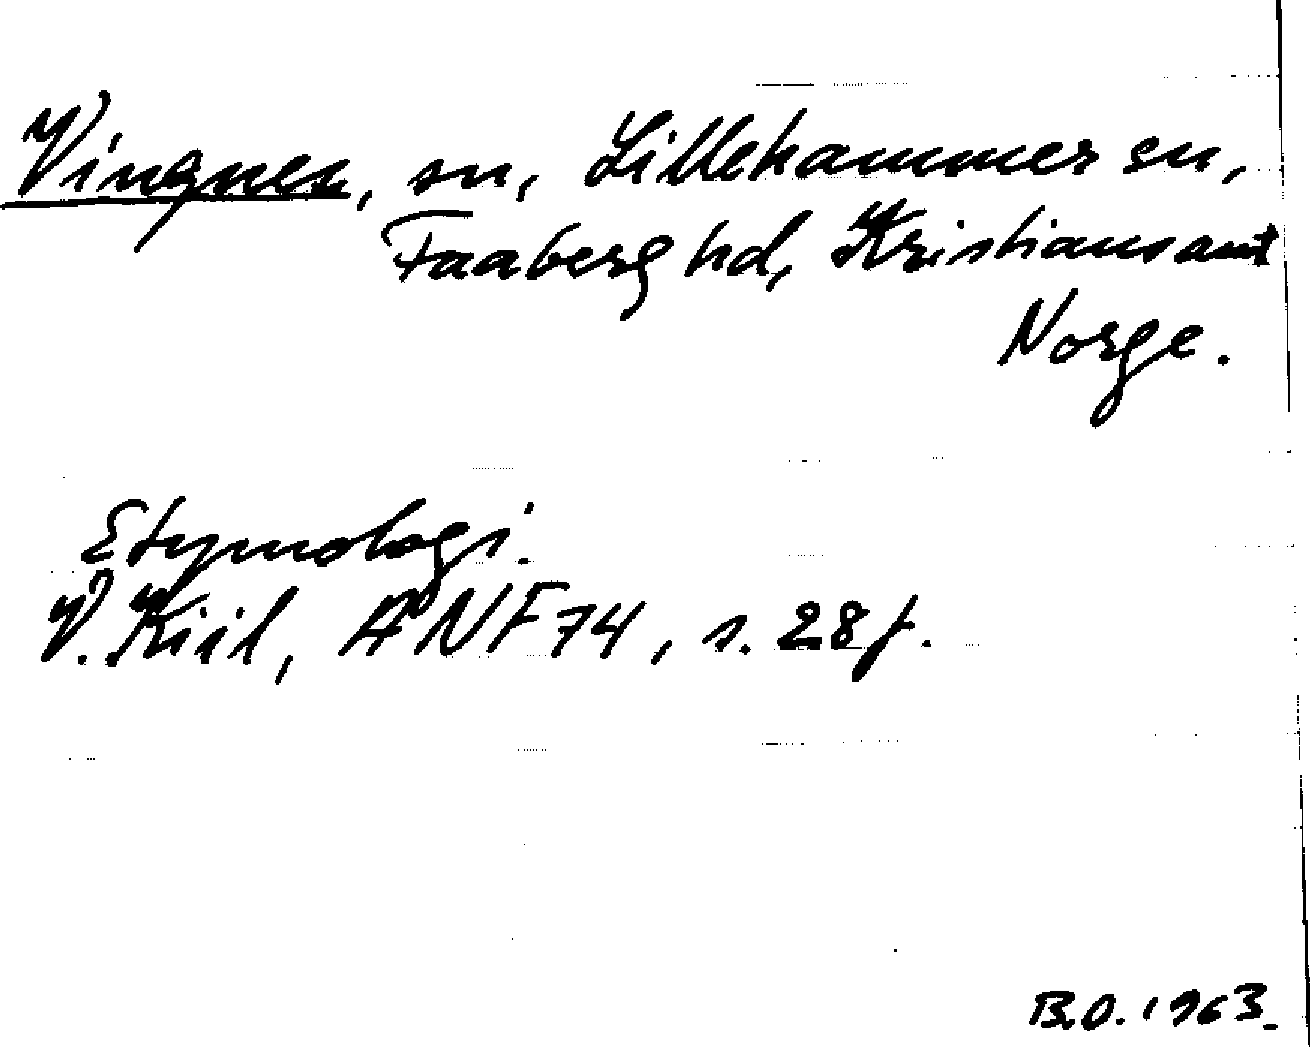 Vingnes, sn, Lillehammer sn,
Faaberg hd, Kristians amt
Norge.
Etymologi.
V. Kiil, ANF 74, s. 28 f.
B.O. 1963.